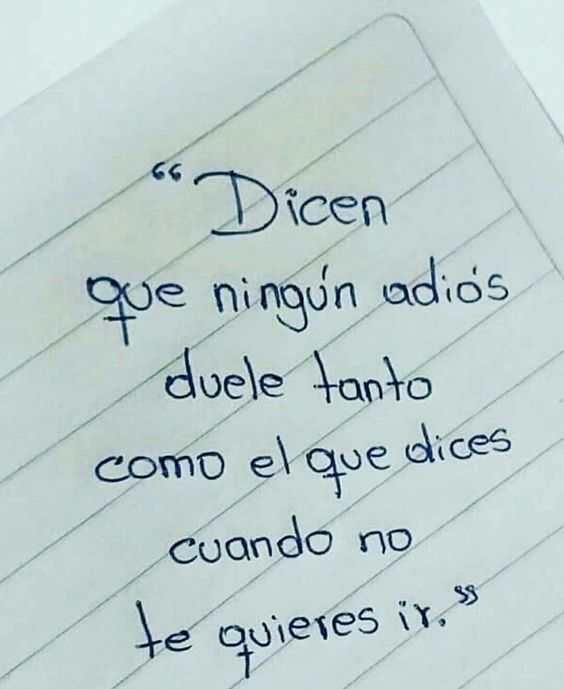 “Dicen
que ningún adiós
duele tanto
como el que dices
cuando no
te quieres ir.”